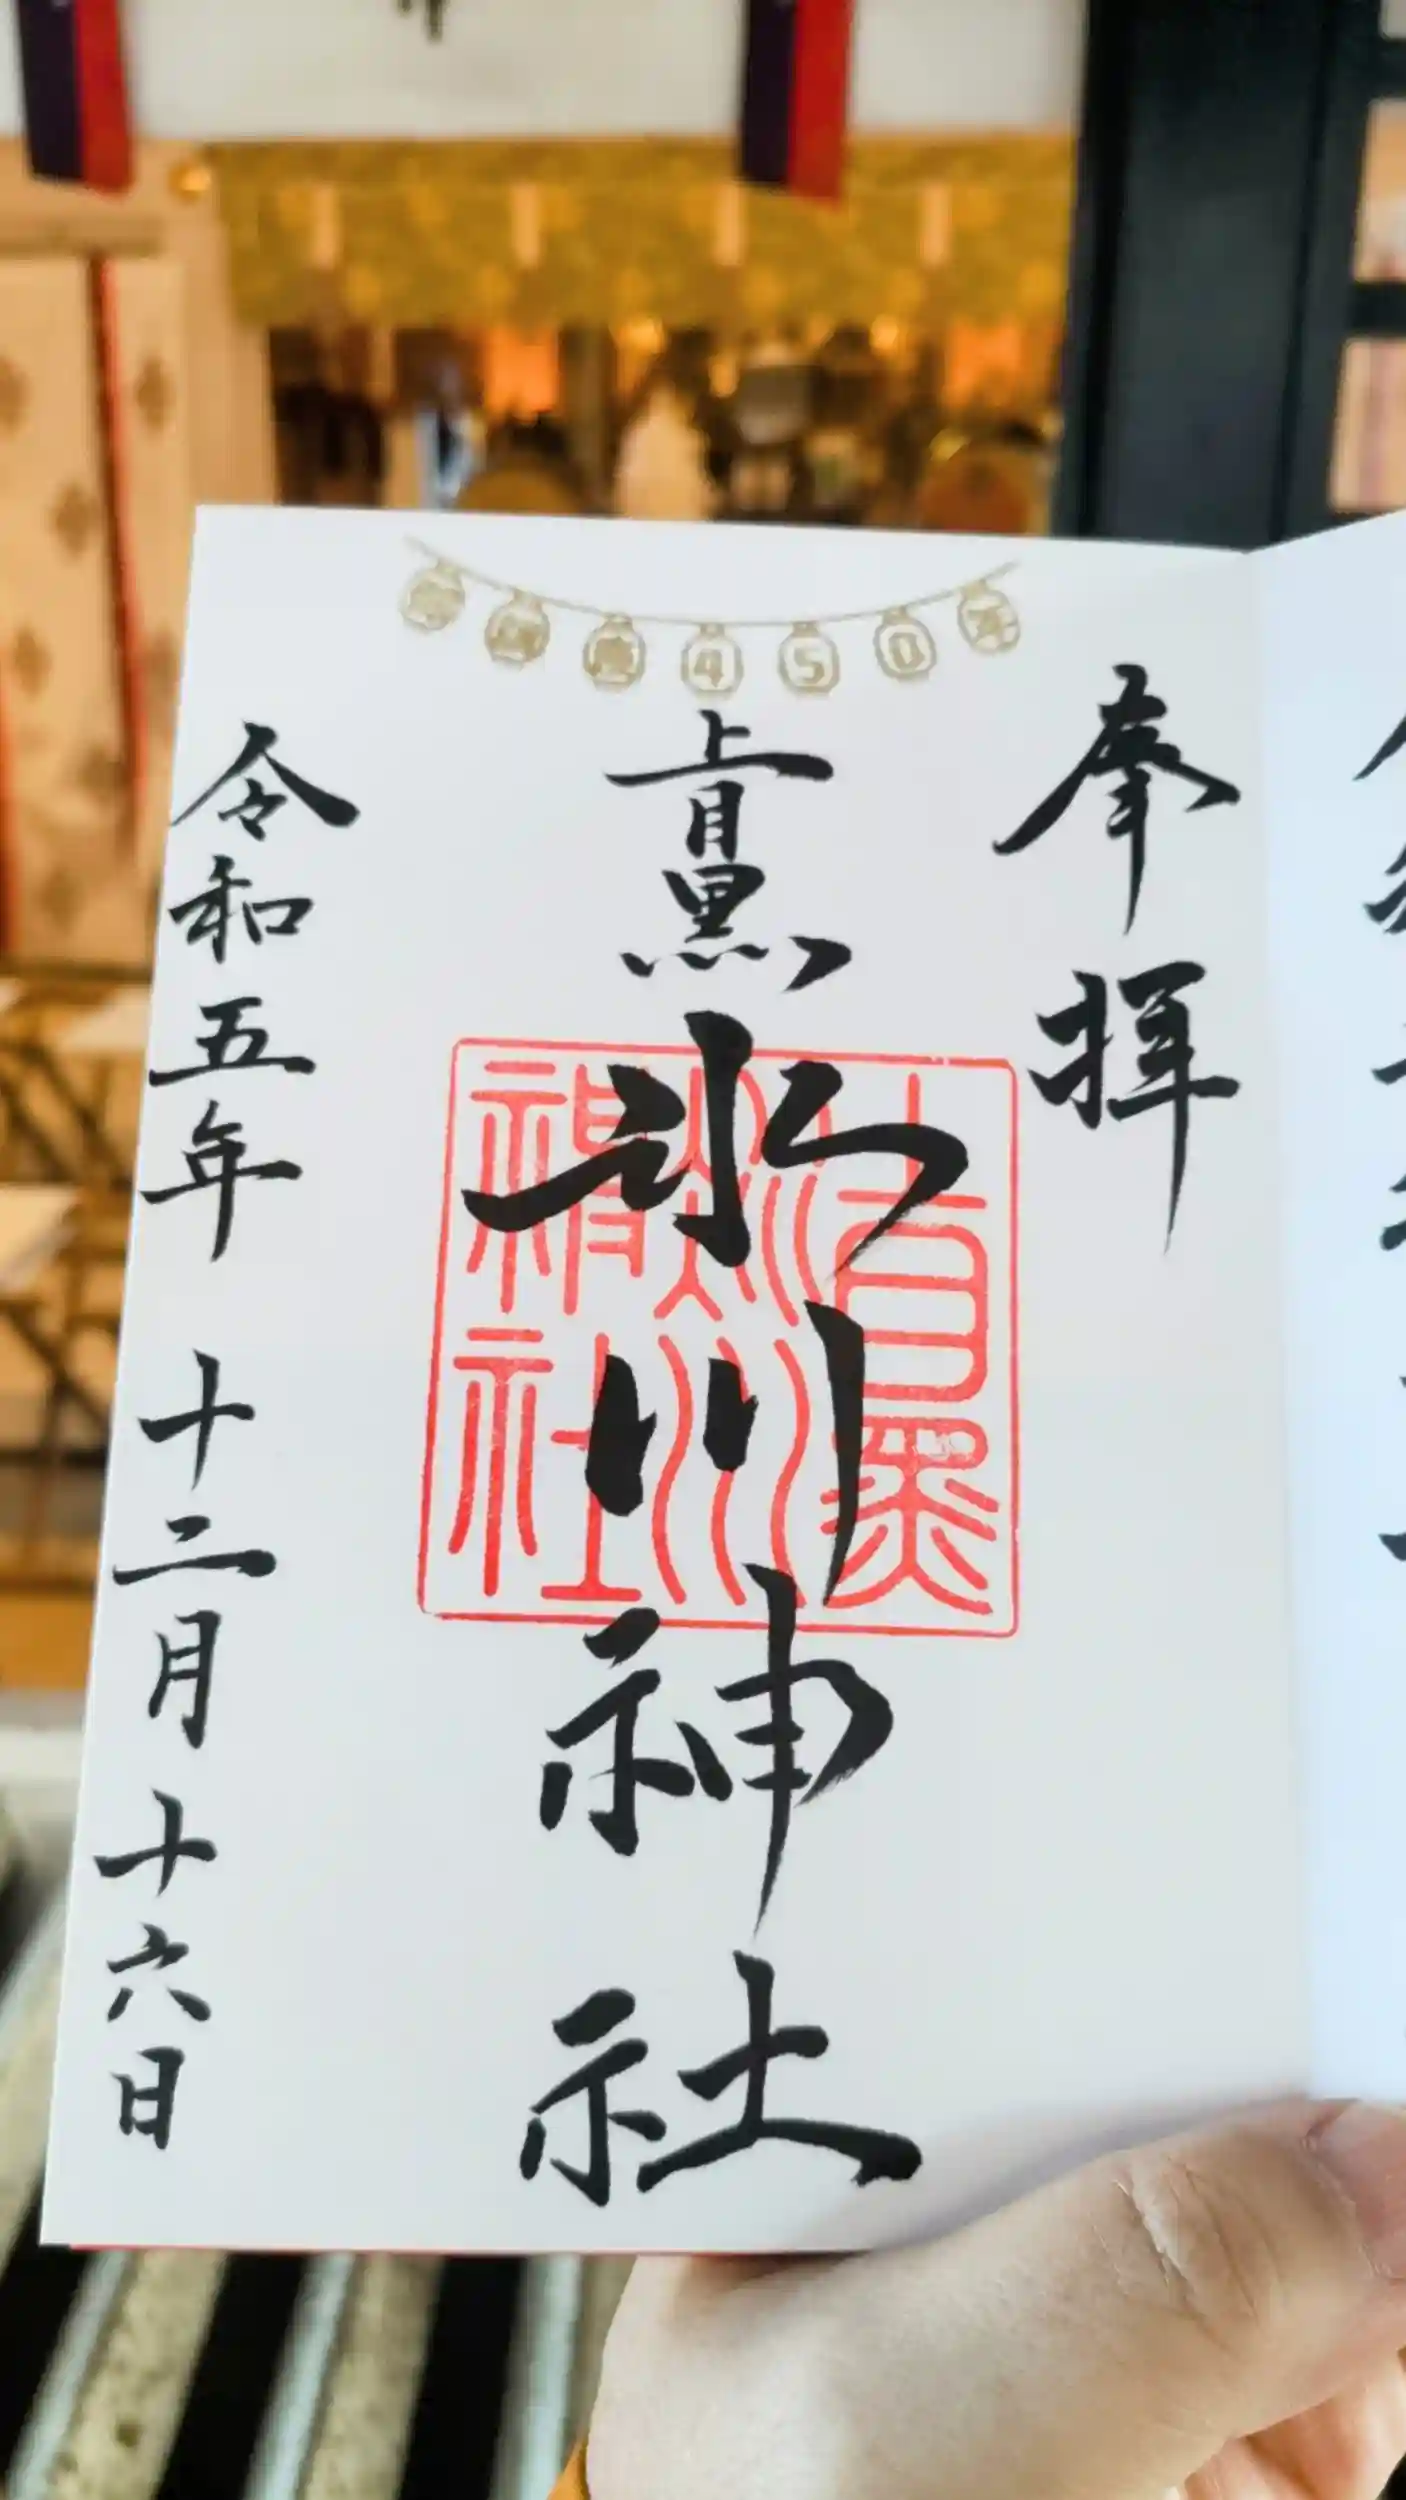 450年
奉拝
上目黒
氷川神社
上目黒
氷川
神社
令和五年十二月十六日